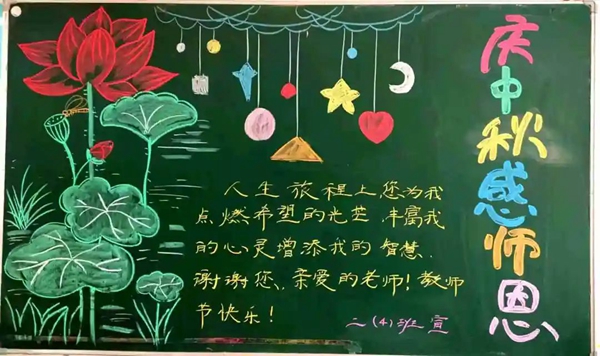 庆中秋感师恩
人生旅程上您为我
点燃希望的光芒，丰富我
的心灵增添我的智慧，
谢谢您，亲爱的老师！教师
节快乐！
二(4)班宣